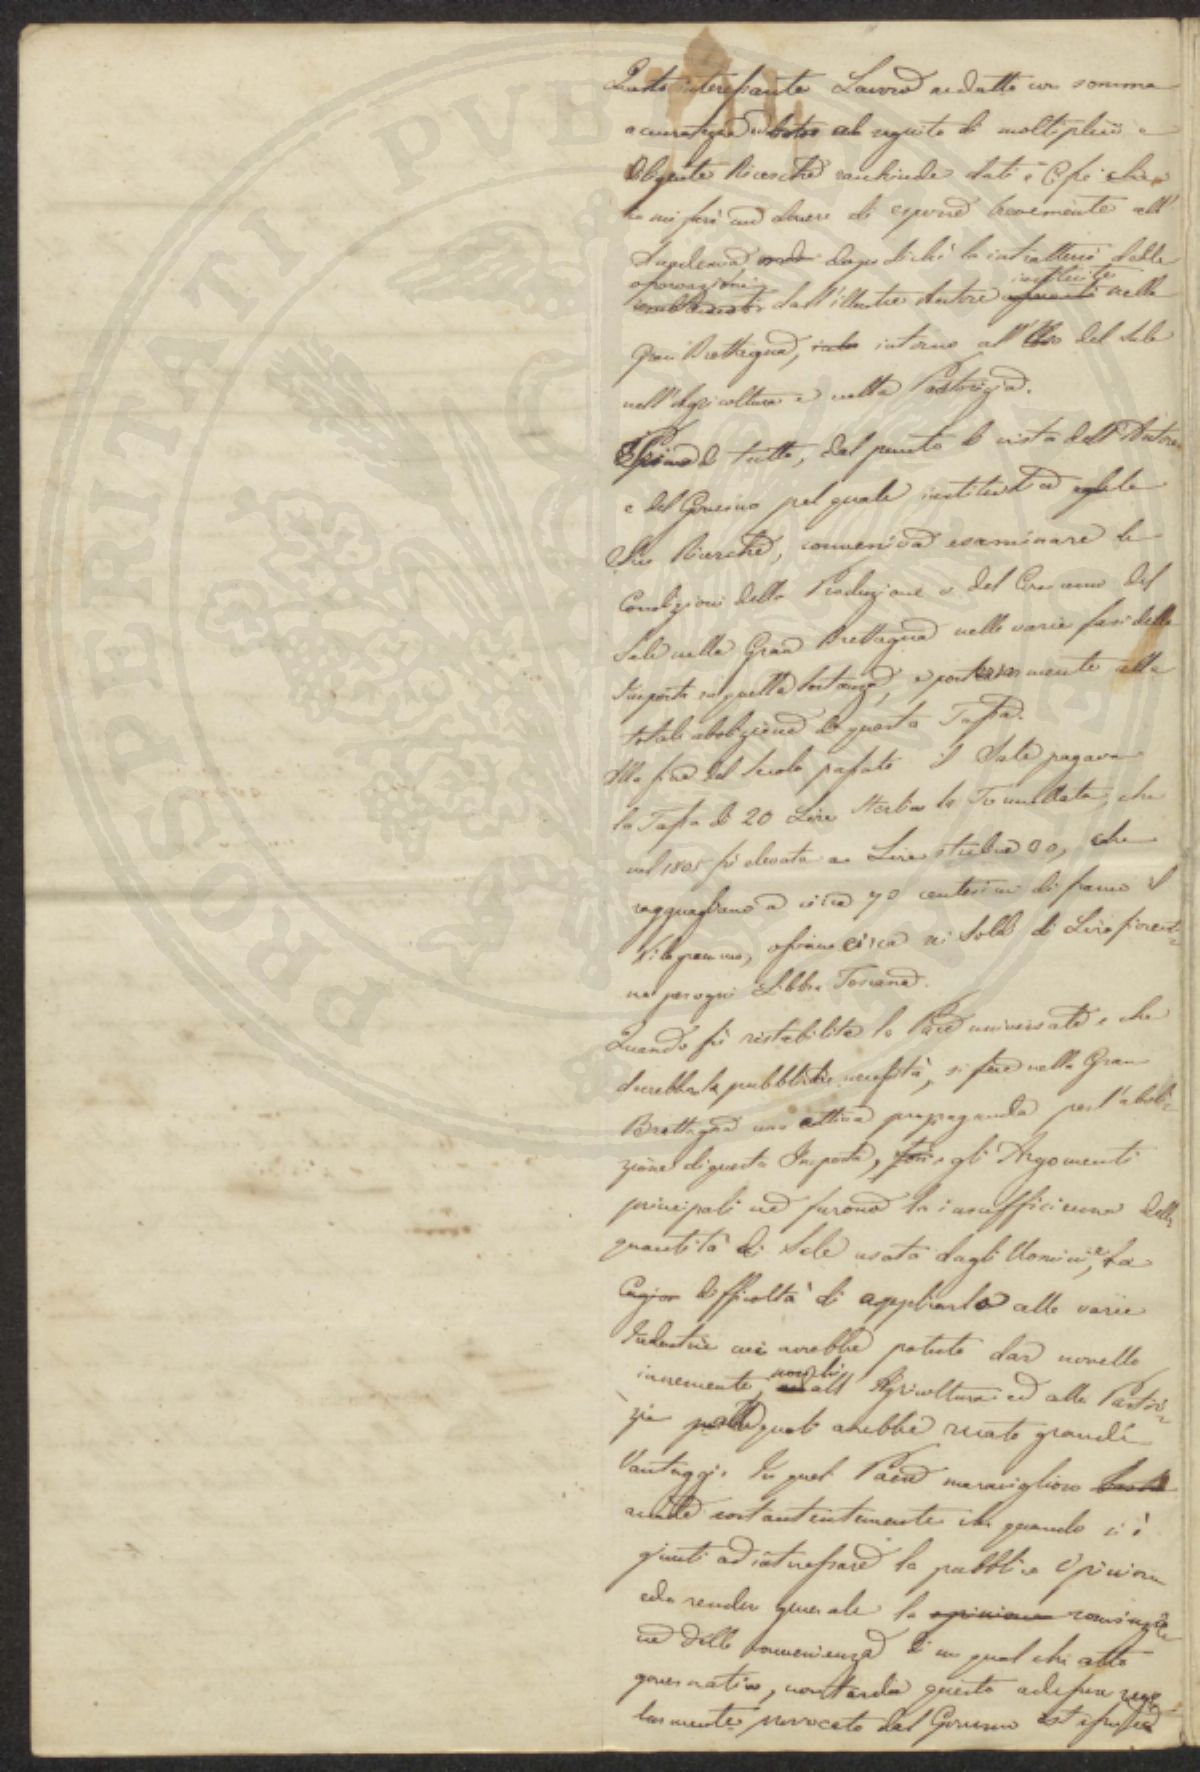 Questo interessante Lavoro redatto con somma
accuratezza ed al seguito di moltiplici e
diligenti Ricerche racchiude dati e che
mi farò un dovere di esporre brevemente all'
Accademia dopo di che la intratterrò delle
osservazioni dall'illustre autore instituite nella
Gran Brettagna, intorno all'Uso del Sale
nell'Agricoltura e nella Pastorizia.
Prima di tutto, dal punto di vista dell'Autore
e del Governo pel quale institutiva
Sue Ricerche, conveniva esaminare le
Condizioni della Produzione e del Consumo del
Sale nella Gran Brettagna nelle varie fasi della
Imposta su quella Sostanza, e posteriormente alla
totale abolizione di questa Tassa.
Alla fine del Secolo passato il Sale pagava
la Tassa di 20 Lire Sterline la Tonnellata, che
nel 1805 fù elevata a Lire sterline 30, che
ragguagliano a circa 70 centesimi di franco il
Kilogrammo, ossiano circa sei Soldi di Lira fiorenti-
na per ogni Libbra Toscana.
Quando fù ristabilita la Pace universale e che
pubbliche necessità, si fece nella Gran
Brettagna una attiva propaganda per l'aboli-
zione di questa Imposta, e gli Argomenti
principali ne furono la insufficienza della
quantità di Sale usata dagli Uomini, la
difficoltà di applicarlo alle varie
Industrie cui avrebbe potuto dar novello
incremento, all'Agricoltura ed alla Pastori-
zia quali avrebbe recato grandi
Vantaggi. In quel Paese maraviglioso
accade costantemente che quando si è
giunti ad interessare la pubblica Opinione
ed a render generale la convinzio
ne della convenienza di un qualche atto
governativo, non tarda questo ad essere rego
larmente provocato dal Governo